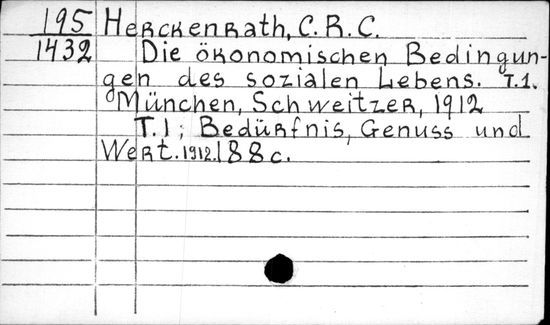 195 Herckenrath, C. R. C.
1432 Die ökonomischen Bedingun-
gen des sozialen Lebens. T.1.
München, Schweitzer, 1912
T.1; Bedürfnis, Genuss und
Wert. 1912. 188 c.